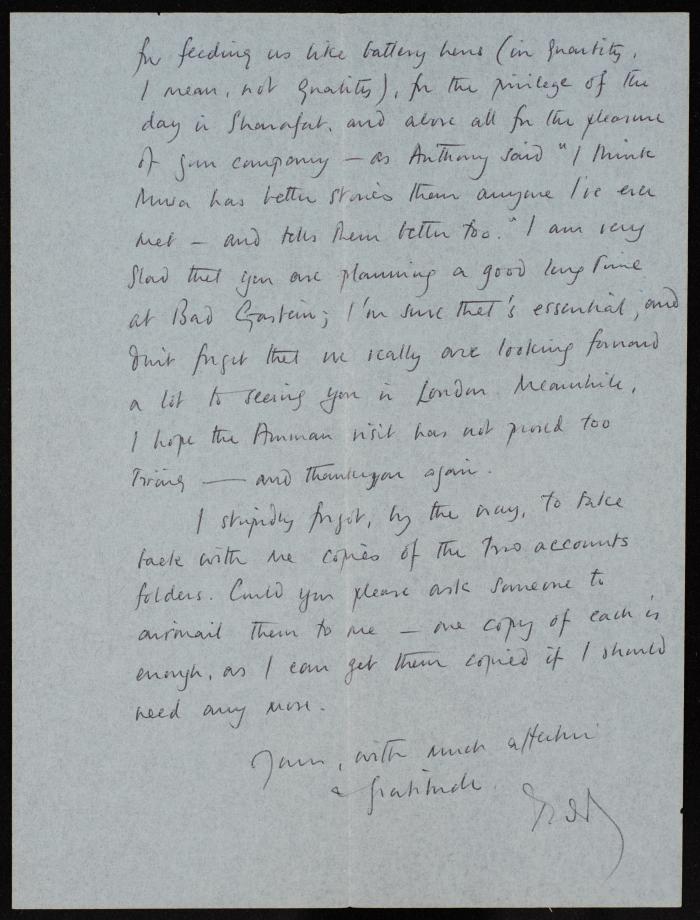 for feeding us like battery hens (in quantity,
I mean, not quality), for the privilege of the
day in Sharafat, and above all for the pleasure
of your company — as Anthony said "I think
Musa has better stories than anyone I've ever
met — and tells them better too." I am very
glad that you are planning a good long time
at Bad Gastein; I'm sure that's essential, and
don't forget that we really are looking forward
a lot to seeing you in London. Meanwhile,
I hope the Amman visit has not proved too
tiring — and thankyou again.
I stupidly forgot, by the way, to take
back with me copies of the two accounts
folders. Could you please ask someone to
airmail them to me — one copy of each is
enough, as I can get them copied if I should
need any more.
Yours, with much affection
& gratitude.